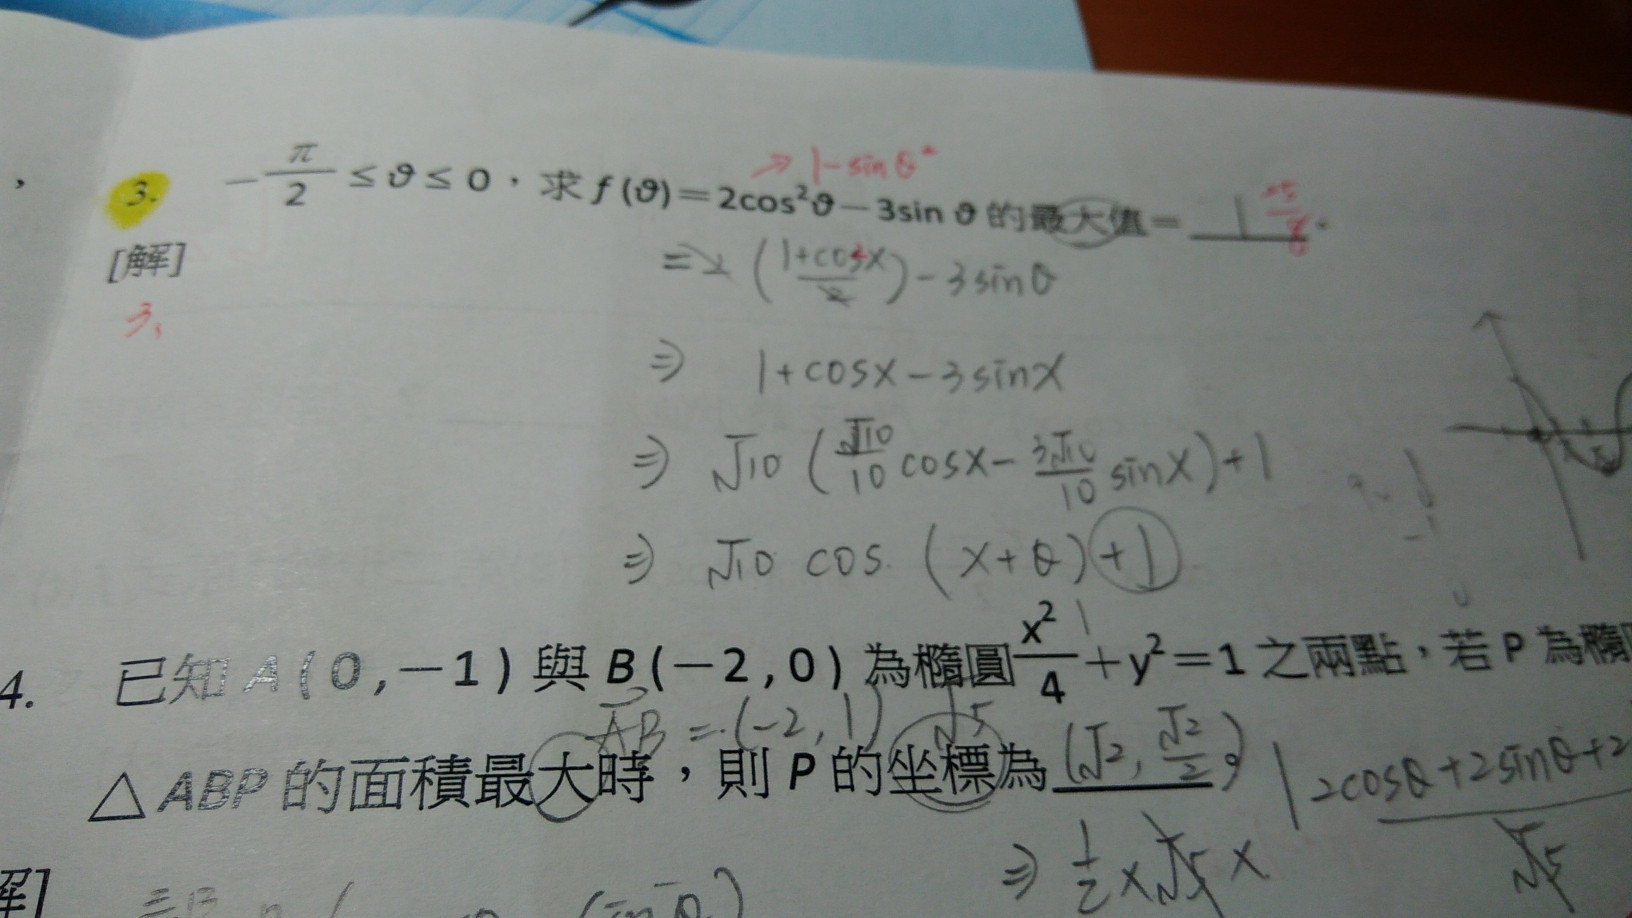 → 1-sinθ²
3. -π/2 ≤ θ ≤ 0，求 f(θ)=2cos²θ-3sin θ 的最大值= 1
[解]
=2(1+cosx/2)-3sinθ
3.
⇒ 1+cosx-3sinx
⇒ √10(√10/10 cosx-3√10/10 sinx)+1
⇒ √10 cos (x+θ)+1
4. 已知 A(0,-1)與 B(-2,0)為橢圓 x²/4+y²=1 之兩點，若 P 為橢
AB=(-2,1) √5
△ABP 的面積最大時，則 P 的坐標為(√2, √2/2)。
|2cosθ+2sinθ+2
√5
⇒ 1/2×√5×
解]